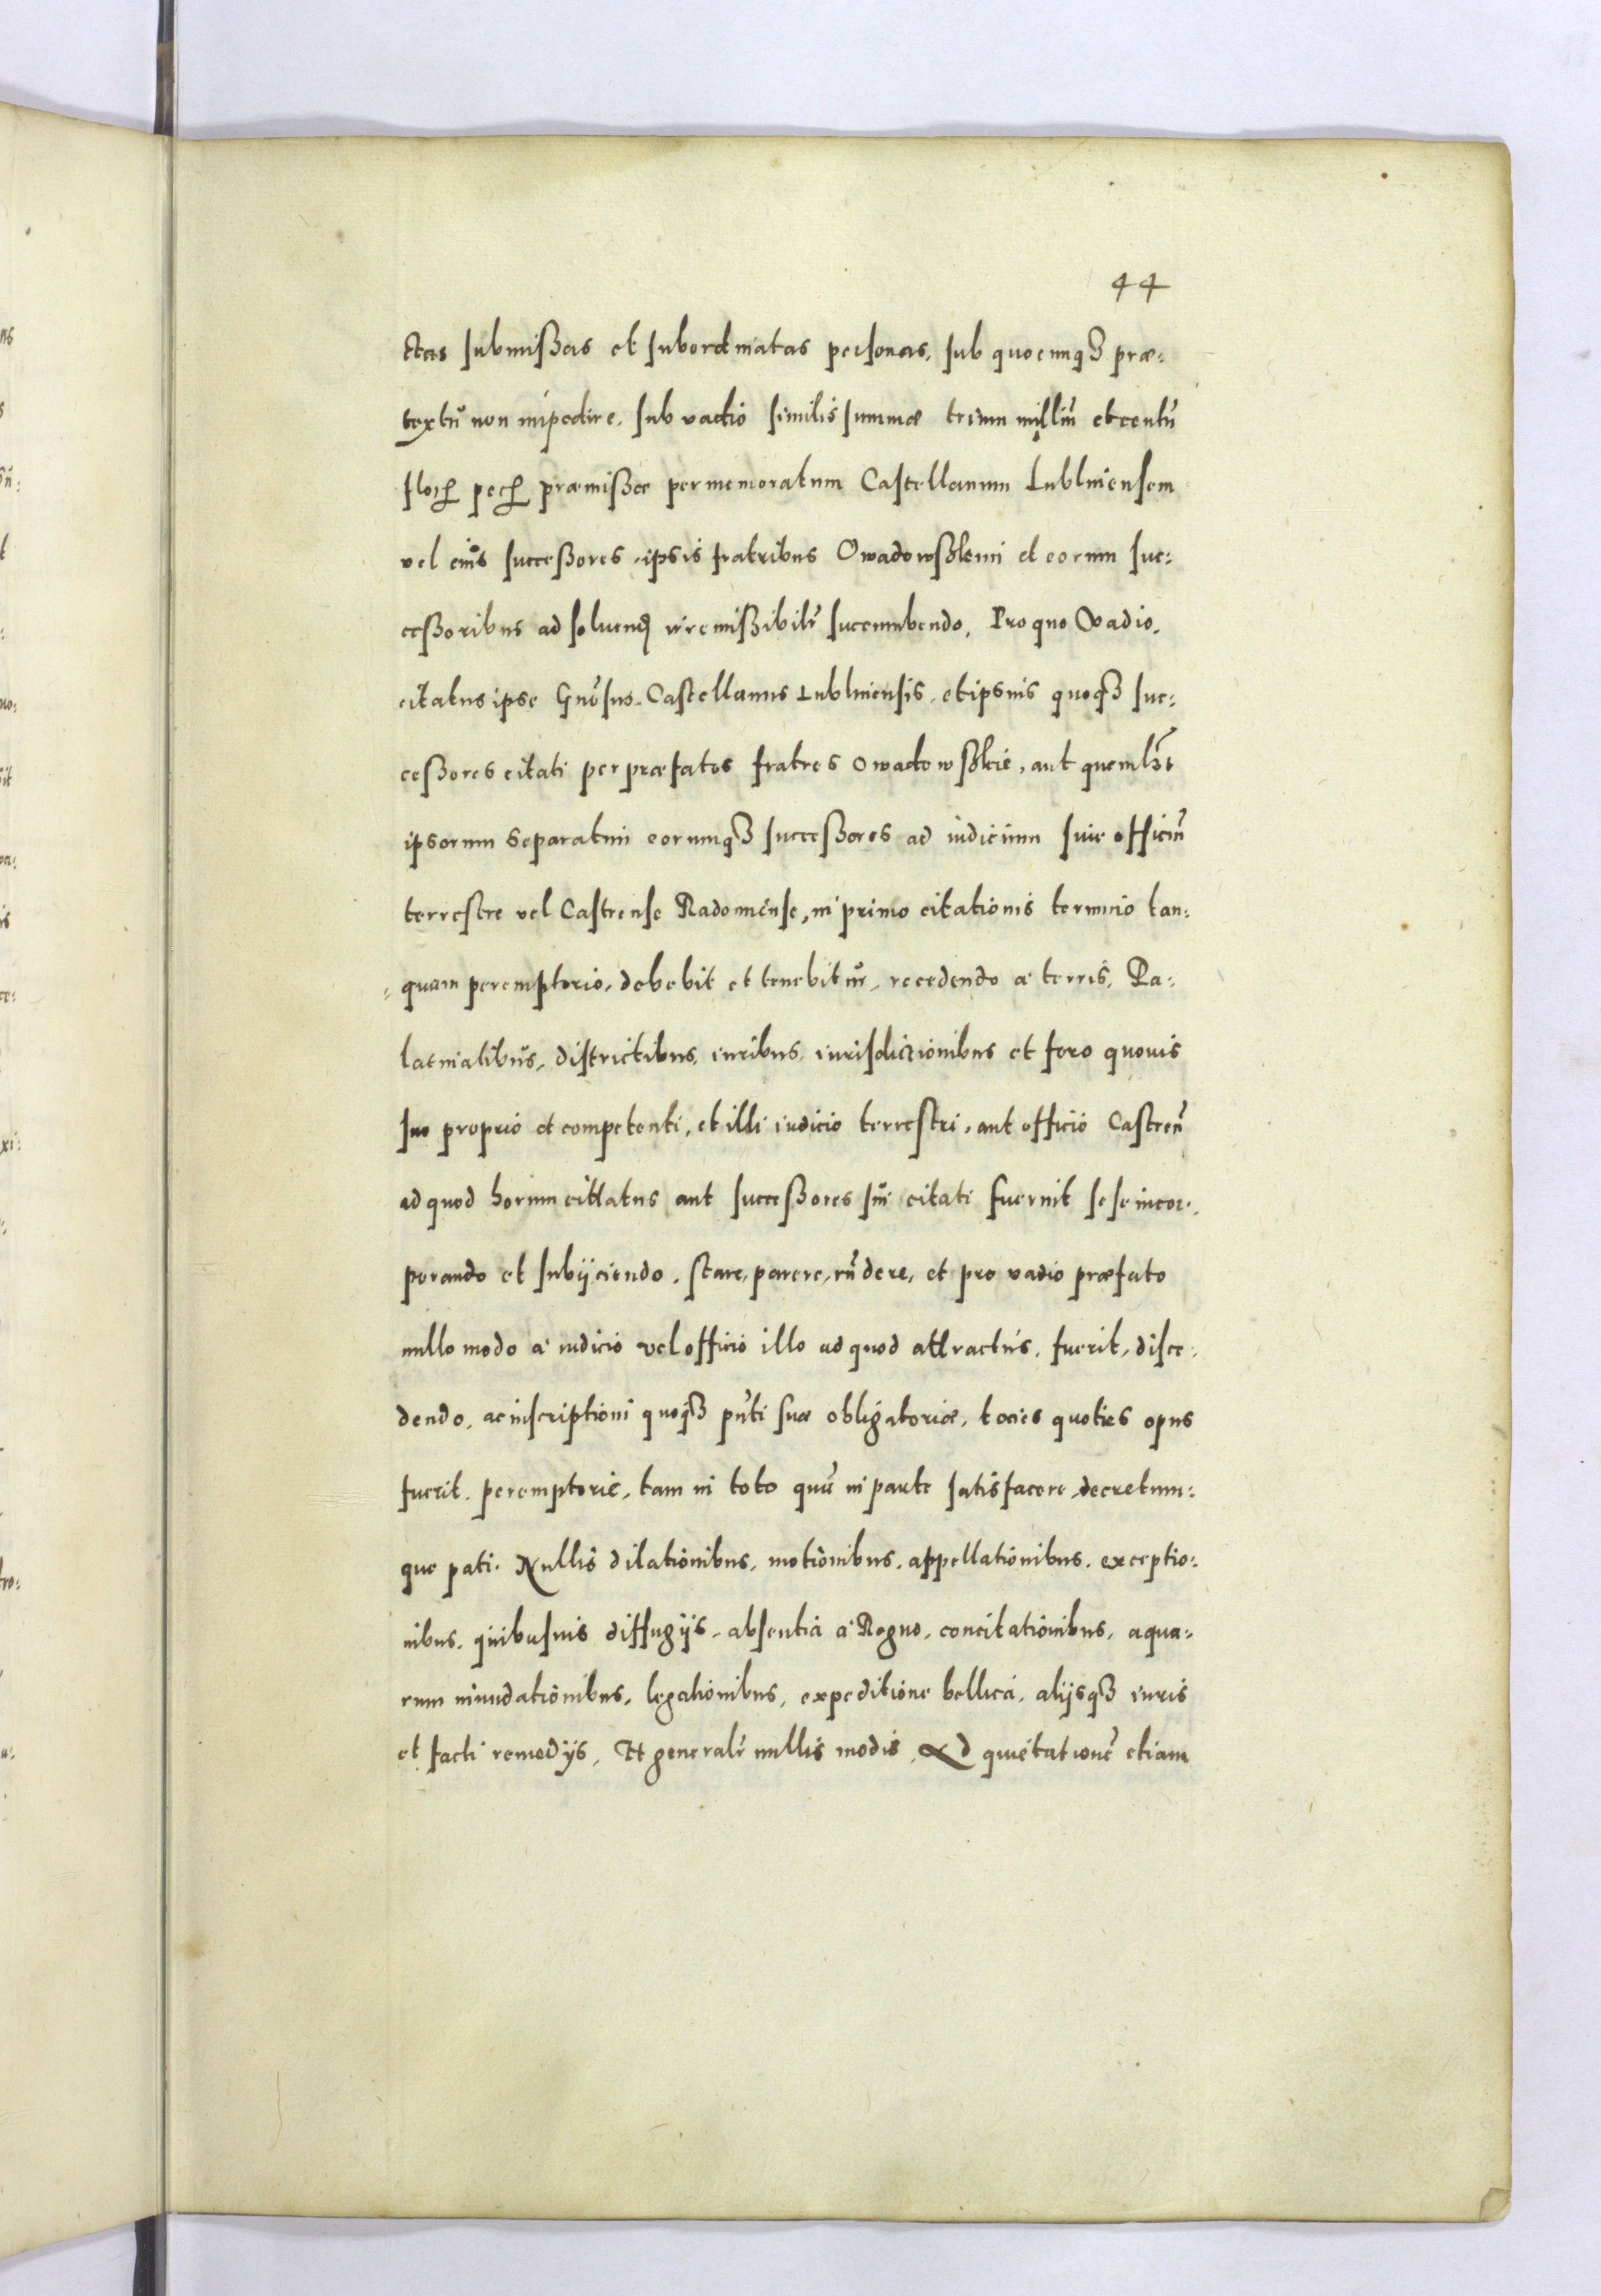 44
ctas submissas et subordinatas personas, sub quocunqȝ præ:
textu non impedire, sub vadio similis summæ trium milliũ et centũ
floꝝ peꝝ præmissæ per memoratum Castellanum Lublinensem
vel eius successores, ipsis fratribus Owadowskim et eorum suc:
cessoribus ad soluend irremissibilr̃ succumbendo, Pro quo Vadio,
citatus ipse Gñosus Castellanus Lublinensis, et ipsius quoqȝ suc:
cessores citati per præfatos fratres Owadowskie, aut quemlȝt
ipsorum separatim eorumqȝ successores ad iudicium siue officiũ
terrestre vel Castrense Radomense, in primo citationis termino tan:
quam peremptorio, debebit et tenebitur, recedendo a terris, Pa:
latinatibus, districtibus, iuribus, iurisdictionibus et foro quouis
suo proprio et competenti, et illi iudicio terrestri, aut officio Castreñ
ad quod horum cittatus aut successores sui citati fuerint sese incor:
porando et subijciendo, stare, parere, rñdere, et pro vadio præfato
nullo modo a iudicio vel officio illo ad quod attractus, fuerit, disce:
dendo, ac inscriptioni quoqȝ pñti suæ obligatoriæ, tocies quoties opus
fuerit, peremptorie, tam in toto quã in parte satisfacere, decretum:
que pati. Nullis dilationibus, motionibus, appellationibus, exceptio:
nibus, quibusuis diffugijs, absentia a Regno, concitationibus, aqua:
rum inundationibus, legationibus, expeditione bellica, alijsqȝ iuris
et facti remedijs, Et generalr̃ nullis modis, Ad quietationẽ etiam